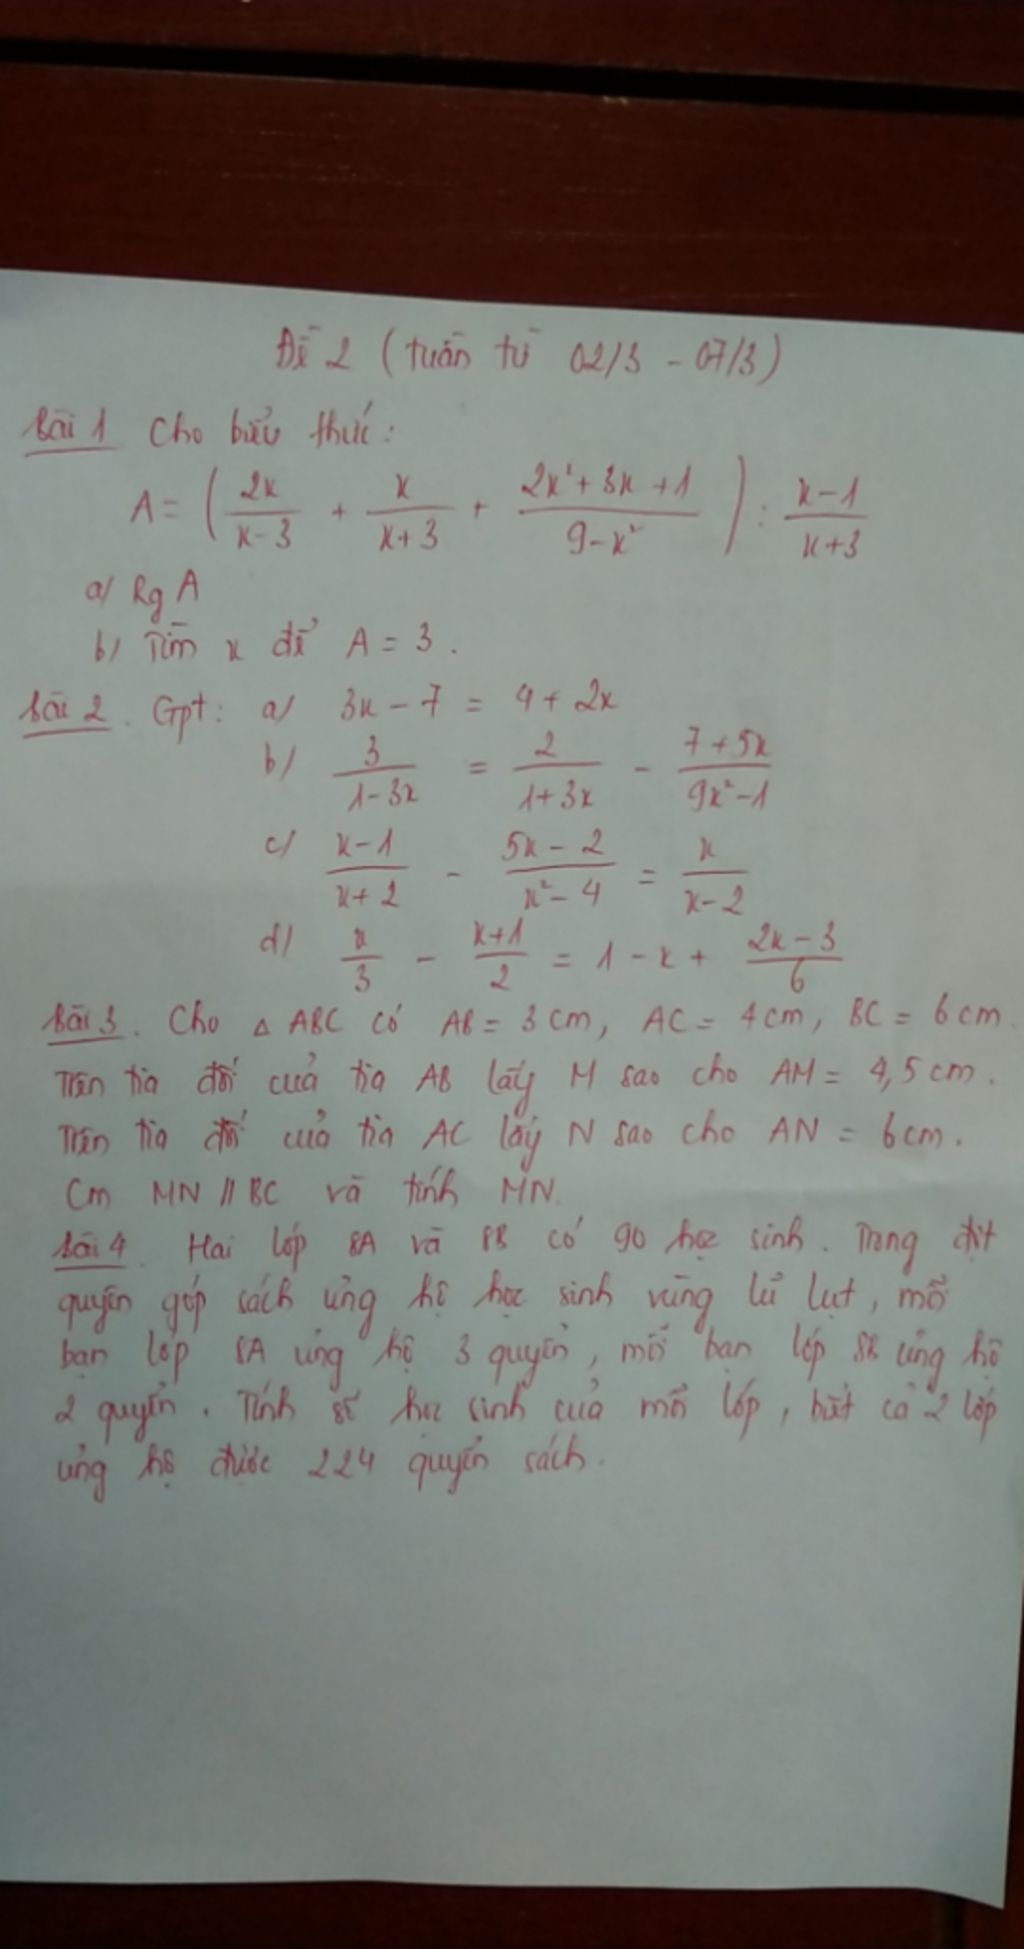 Đề 2 (tuần từ 02/3 - 07/3)
Bài 1 Cho biểu thức:
A = ( 2x/(x-3) + x/(x+3) + (2x²+3x+1)/(9-x²) ) : (x-1)/(x+3)
a/ Rg A
b/ Tìm x để A = 3.
Bài 2. Gpt: a/ 3x - 7 = 4 + 2x
b/ 3/(1-3x) = 2/(1+3x) - (7+5x)/(9x²-1)
c/ (x-1)/(x+2) - (5x-2)/(x²-4) = x/(x-2)
d/ x/3 - (x+1)/2 = 1 - x + (2x-3)/6
Bài 3. Cho △ ABC có AB = 3cm, AC = 4cm, BC = 6cm.
Trên tia đối của tia AB lấy M sao cho AM = 4,5cm.
Trên tia đối của tia AC lấy N sao cho AN = 6cm.
Cm MN // BC và tính MN.
Bài 4. Hai lớp 8A và 8B có 90 học sinh. Trong đợt
quyên góp sách ủng hộ học sinh vùng lũ lụt, mỗi
bạn lớp 8A ủng hộ 3 quyển, mỗi bạn lớp 8B ủng hộ
2 quyển. Tính số học sinh của mỗi lớp, biết cả 2 lớp
ủng hộ được 224 quyển sách.